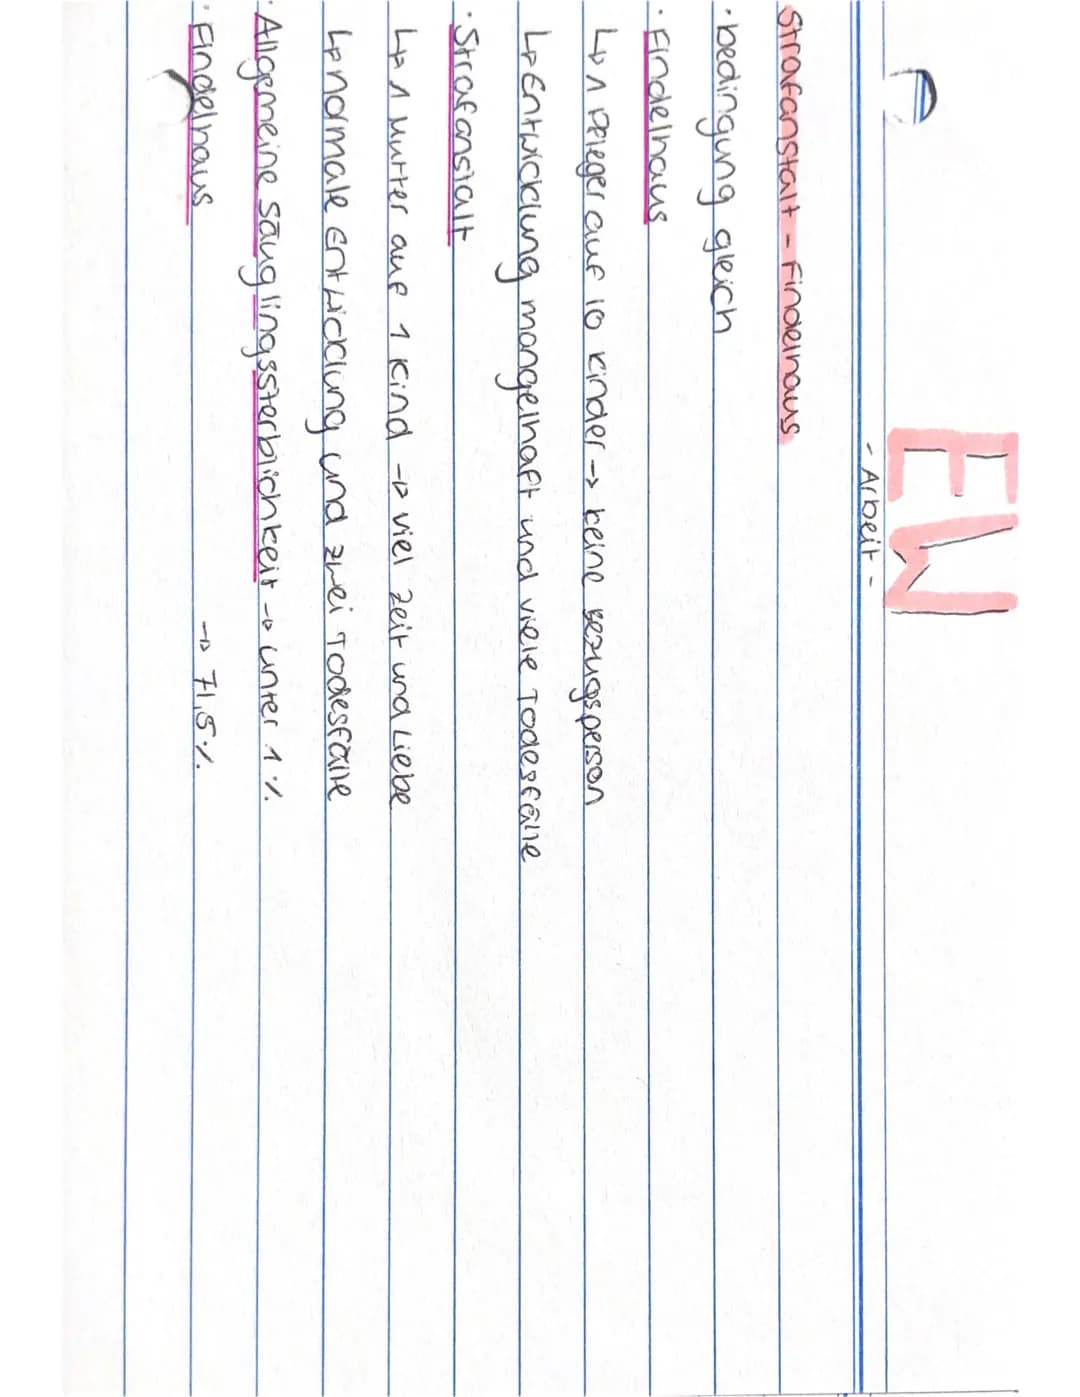 EW
- Arbeit -
Strafanstalt - Findelhaus
· bedingung gleich
· Findelhaus
↳ 1 Pfleger auf 10 Kinder → keine Bezugsperson
↳ Entwicklung mangelhaft und viele Todesfälle
· Strafanstalt
↳ 1 Mutter auf 1 Kind → viel Zeit und Liebe
↳ normale Entwicklung und zwei Todesfälle
· Allgemeine Säuglingssterblichkeit → unter 1%.
· Findelhaus → 71,5%.